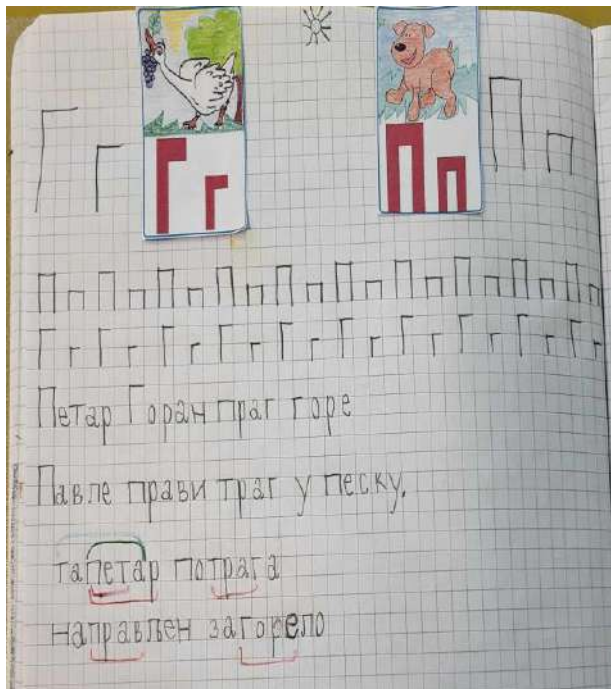 Г г Г г П п П п
П п П п П п П п П п П п П п П п П п П п
Г г Г г Г г Г г Г г Г г Г г Г г Г г Г г
Петар Горан праг горе
Павле прави траг у песку.
тапетар потрага
направљен загорело